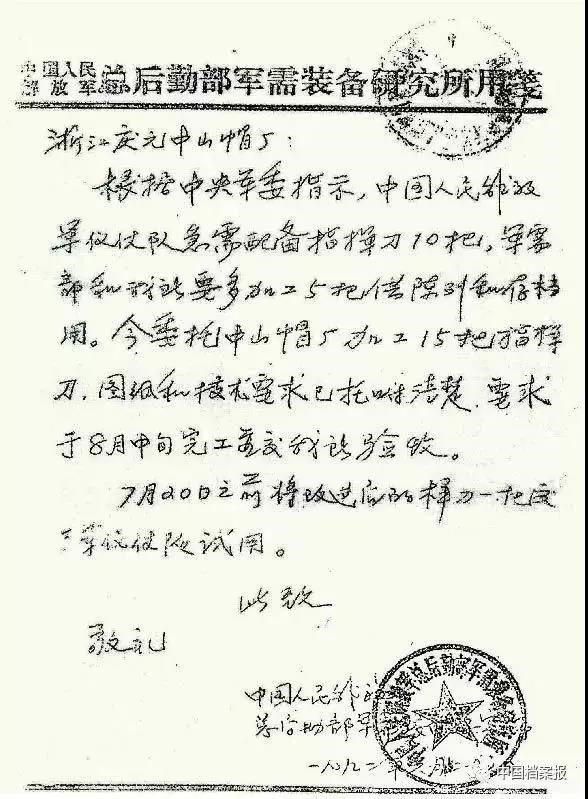 中国人民
解放军 总后勤部军需装备研究所用笺
浙江庆元中山帽厂：
根据中央军委指示，中国人民解放
军仪仗队急需配备指挥刀10把，军需
部和我所要多加工5把供陈列和存档
用。今委托中山帽厂加工15把指挥
刀，图纸和技术要求已托咐清楚，要求
于8月中旬完工寄交我所验收。
7月20日之前将改进后的样刀一把送
三军仪仗队试用。
此致
敬礼
中国人民解放
总后勤部军
一九九二年
中国档案报